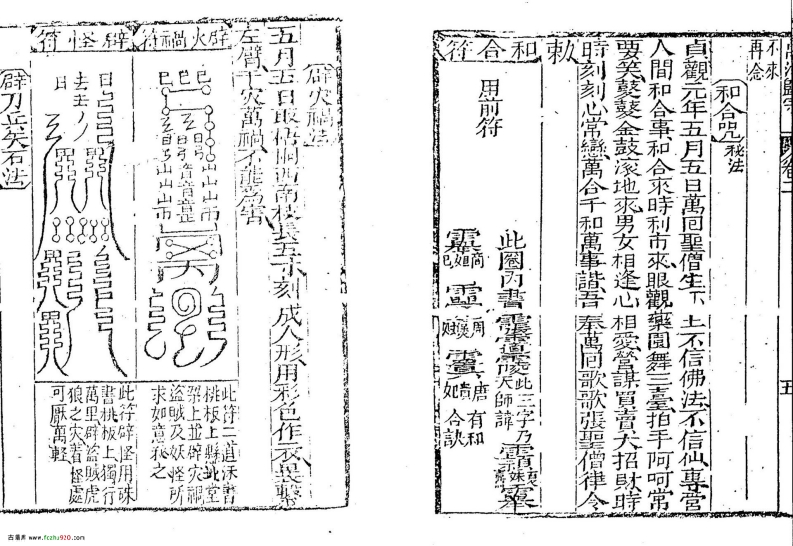 不來
再念
和合咒秘法
貞觀元年五月五日萬回聖僧生下土不信佛法不信仙專管
人間和合事和合來時利市來眼觀藥園舞三臺拍手阿呵常
要笑鼕鼕金鼓滾地來男女相逢心相愛營謀買賣大招財時
時刻刻心常戀萬合千和萬事諧吾奉萬回歌歌張聖僧律令
敕
和合符
用前符
此圈內書
此三字乃
天師諱
有和
合訣
辟灾禍法
五月五日取梧桐西南枝長五寸刻成人形用彩色作衣裳繫
左臂千灾萬禍不能為害
辟火禍符
此符二道硃書
桃板上懸於堂
梁上並辟灾禍
盜賊及妖怪所
求如意為之
辟怪符
此符辟怪用硃
書桃板上獨行
萬里辟盜賊虎
狼之灾著怪處
可厭萬輕
辟刀兵矢石法
古籍库 www.fczhu920.com